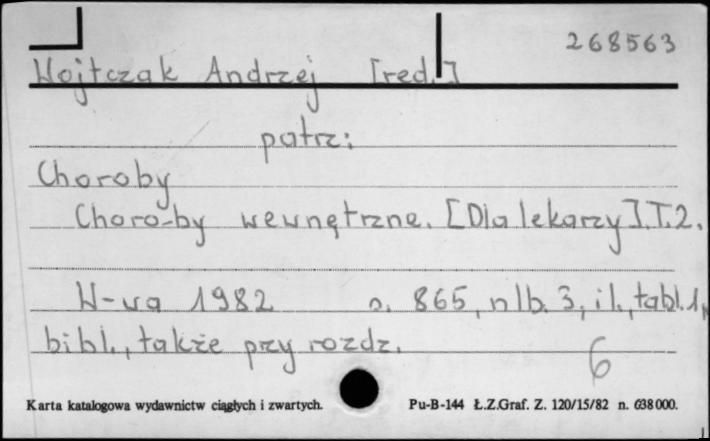 268563
Wojtczak Andrzej [red.]
patrz:
Choroby
Choro-by wewnętrzne. [Dla lekarzy]. T.2.
W-wa 1982 s. 865, nlb. 3, il., tabl. 1,
bibl., także przy rozdz.
6
Karta katalogowa wydawnictw ciągłych i zwartych. Pu-B-144 Ł.Z.Graf. Z. 120/15/82 n. 638000.